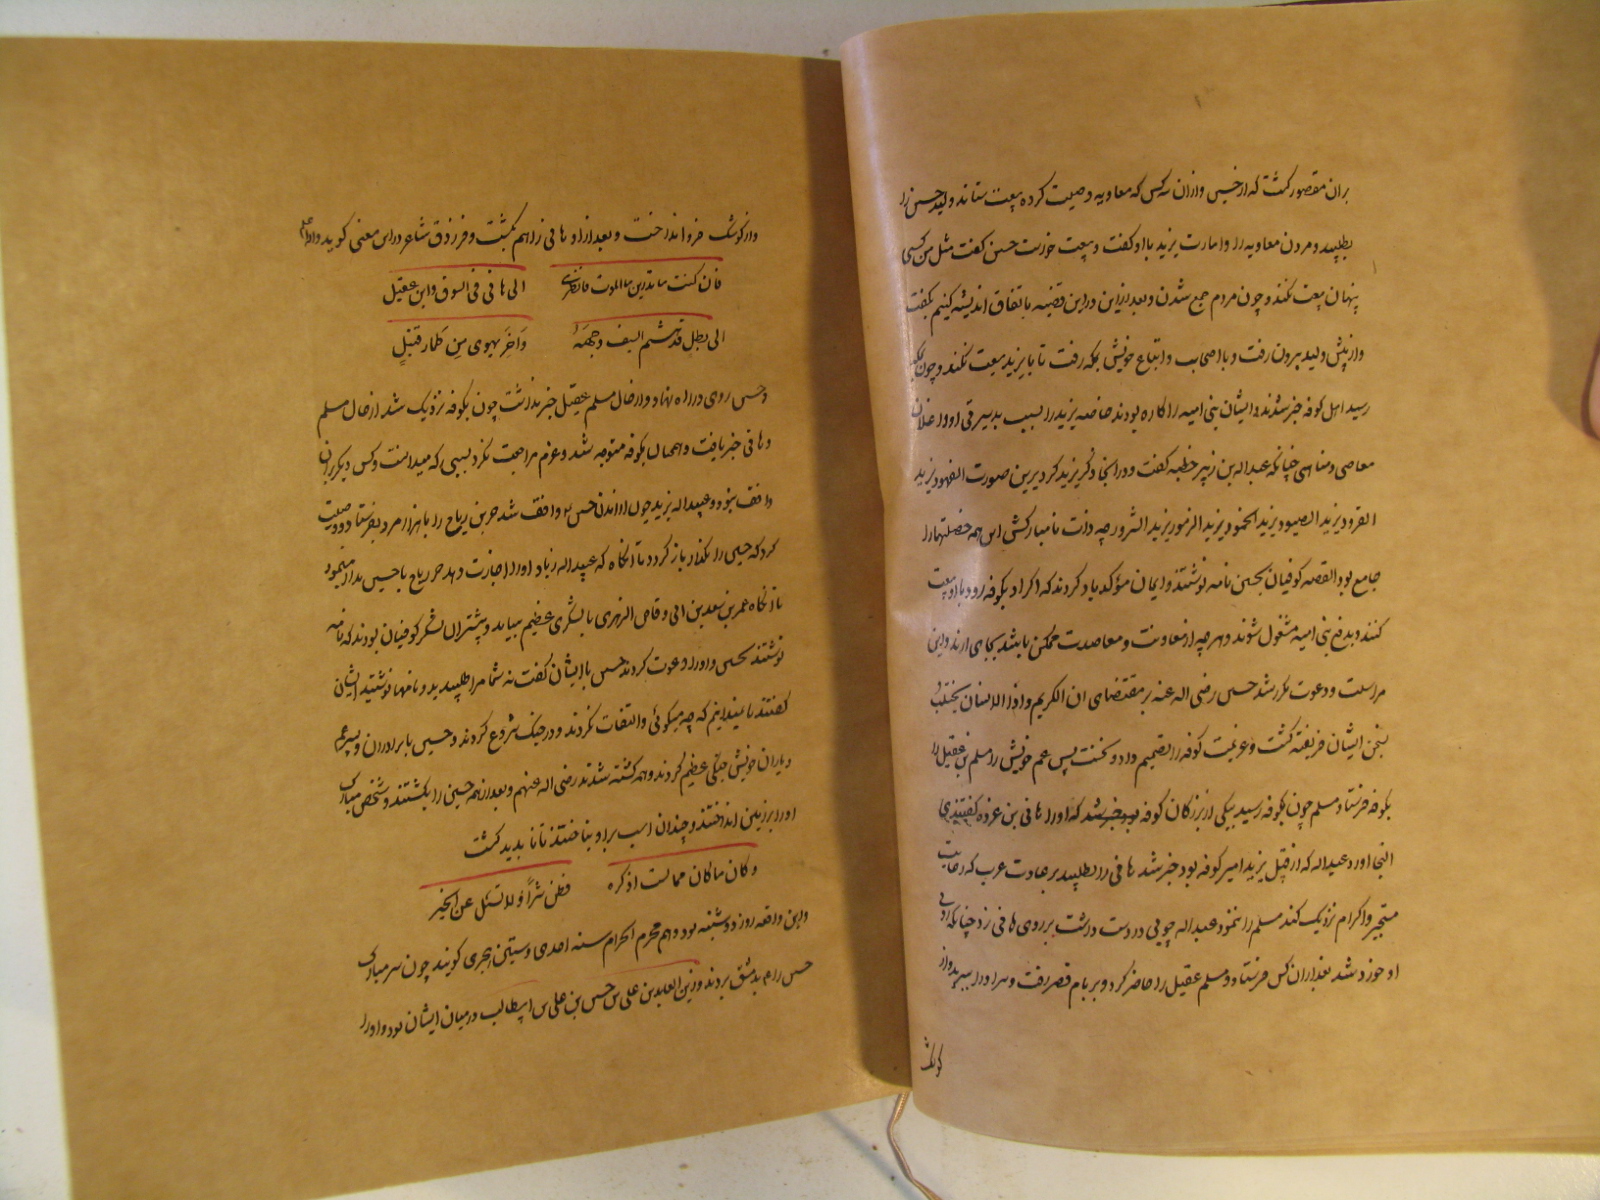 بران مقصور گشت که از حسین و از ان سه کس که معاویه وصیت کرده بیعت ستاند ولید حسن را
بطلبید و مردن معاویه را و امارت یزید با او گفت و بیعت خواست حسین گفت مثل من کسی
پنهان بیعت نکند و چون مردم جمع شدن و بعد ازین دراین قضیه باتفاق اندیشه کنیم بگفت
و از پیش ولید بیرون رفت و با اصحاب و اتباع خویش بمکه رفت تا با یزید بیعت نکند و چون بمکه
رسید اهل کوفه خبر شدند و ایشان بنی امیه را کاره بودند خاصه یزید را بسبب بدسیرتی او و اعلان
معاصی و مناهی چنانکه عبد اله بن زبیر خطبه گفت و در انجا ذکر یزید کرد برین صورت الفهود یزید
القرود یزید الصیود یزید الخمود یزید الزمور یزید الشرور چه ذات نامبارکش این همه خصلتها را
جامع بود القصه کوفیان بحسین نامه نوشتند و ایمان مؤکد یاد کردند که اگر او بکوفه رود با او بیعت
کنند و بدفع بنی امیه مشغول شوند و هر چه از معاونت و معاضدت ممکن باشد بجای ارند و این
مراسلت و دعوت مکرر شد حسین رضی اله عنه بر مقتضای ان الکریم و اذا الانسان
بسخن ایشان فریفته گشت و عزیمت کوفه را تصمیم داد و نخست پس عم خویش را مسلم بن عقیل را
بکوفه فرستاد مسلم چون بکوفه رسید بیکی از بزرکان کوفه که او را هانی بن عروه گفتندی
التجا اورد عبد اله که از قبل یزید امیر کوفه بود خبر شد هانی را بطلبید بر عادت عرب که رعایت
مستجیر و اکرام نزدیک کند مسلم را ننمود عبد اله چوبی در دست داشت بر روی هانی زد چنانکه روی
او خورد شد بعد از ان کس فرستاد و مسلم عقیل را حاضر کرد و بر بام قصر رفت و سر او را ببرید و از
کوشک
و از کوشک فرو انداخت و بعد از او هانی را هم بکشت و فرزدق شاعر دراین معنی کوید
فان کنت ما تدرین ما الموت فانظری الی هانی فی السوق و ابن عقیل
الی بطل قد هشم السیف وجهه و آخر یهوی من طمار قتیل
و حسین روی در راه نهاد و از حال مسلم عقیل خبر نداشت چون بکوفه نزدیک شد از حال مسلم
و هانی خبر یافت و همچنان بکوفه متوجه شد و عزم مراجعت نکرد بسببی که میدانست و کس دیگر بران
واقف نبود و عبید اله یزید چون از امدن حسین واقف شد حر بن ریاح را با هزار مرد بفرستاد و وصیت
کرد که حسین را نگذارد باز گردد تا انگاه که عبید اله زیاد او را اجازت دهد حر ریاح با حسین مدارا مینمود
تا انگاه عمر بن سعد بن ابی وقاص الزهری با لشکری عظیم بیامد و بیشتر ان لشکر کوفیان بودند که نامه
نوشتند بحسین و او را دعوت کردند حسین با ایشان گفت نه شما مرا طلبیدید و نامها نوشتید ایشان
گفتند ما نمیدانیم که چه میگوئی و التفات نکردند و در جنگ شروع کردند و حسین با برادران و پسر عم
و یاران خویش جنگی عظیم کردند و همه کشته شدند رضی اله عنهم و بعد از همه حسین را بکشتند و شخص مبارک
او را بر زمین انداختند و چندان اسب بر او بتاختند تا ناپدید گشت
و کان ما کان مما لست اذکره فظن شراً و لا تسئل عن الخیر
و این واقعه روز دوشنبه بود دهم محرم الحرام سنه احدی و ستین هجری گویند چون سر مبارک
حسین را بدمشق بردند و زین العابدین علی بن حسین بن علی بن ابیطالب در میان ایشان بود و او را